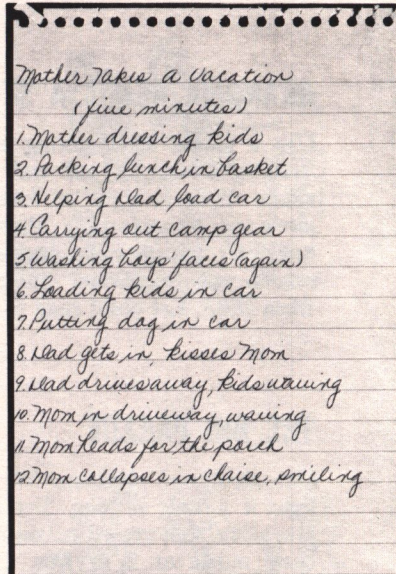 Mother Takes a Vacation
(five minutes)
1. Mother dressing kids
2. Packing lunch in basket
3. Helping Dad load car
4. Carrying out camp gear
5. Washing boys' faces (again)
6. Loading kids in car
7. Putting dog in car
8. Dad gets in, kisses Mom
9. Dad drives away, kids waving
10. Mom in driveway, waving
11. Mom heads for the porch
12. Mom collapses in chaise, smiling